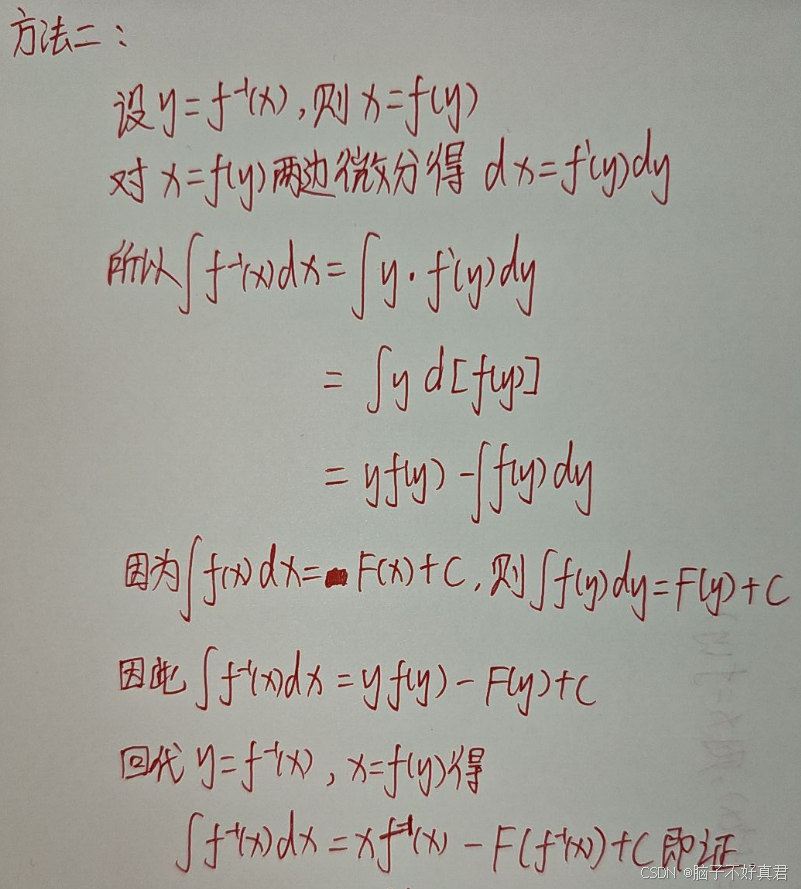 方法二：
设 y=f⁻¹(x)，则 x=f(y)
对 x=f(y)两边微分得 dx=f'(y)dy
所以∫f⁻¹(x)dx=∫y·f'(y)dy
=∫y d[f(y)]
=yf(y)-∫f(y)dy
因为∫f(x)dx=F(x)+C，则∫f(y)dy=F(y)+C
因此∫f⁻¹(x)dx=yf(y)-F(y)+C
回代 y=f⁻¹(x)，x=f(y)得
∫f⁻¹(x)dx=xf⁻¹(x)-F(f⁻¹(x))+C 即证
CSDN @脑子不好真君